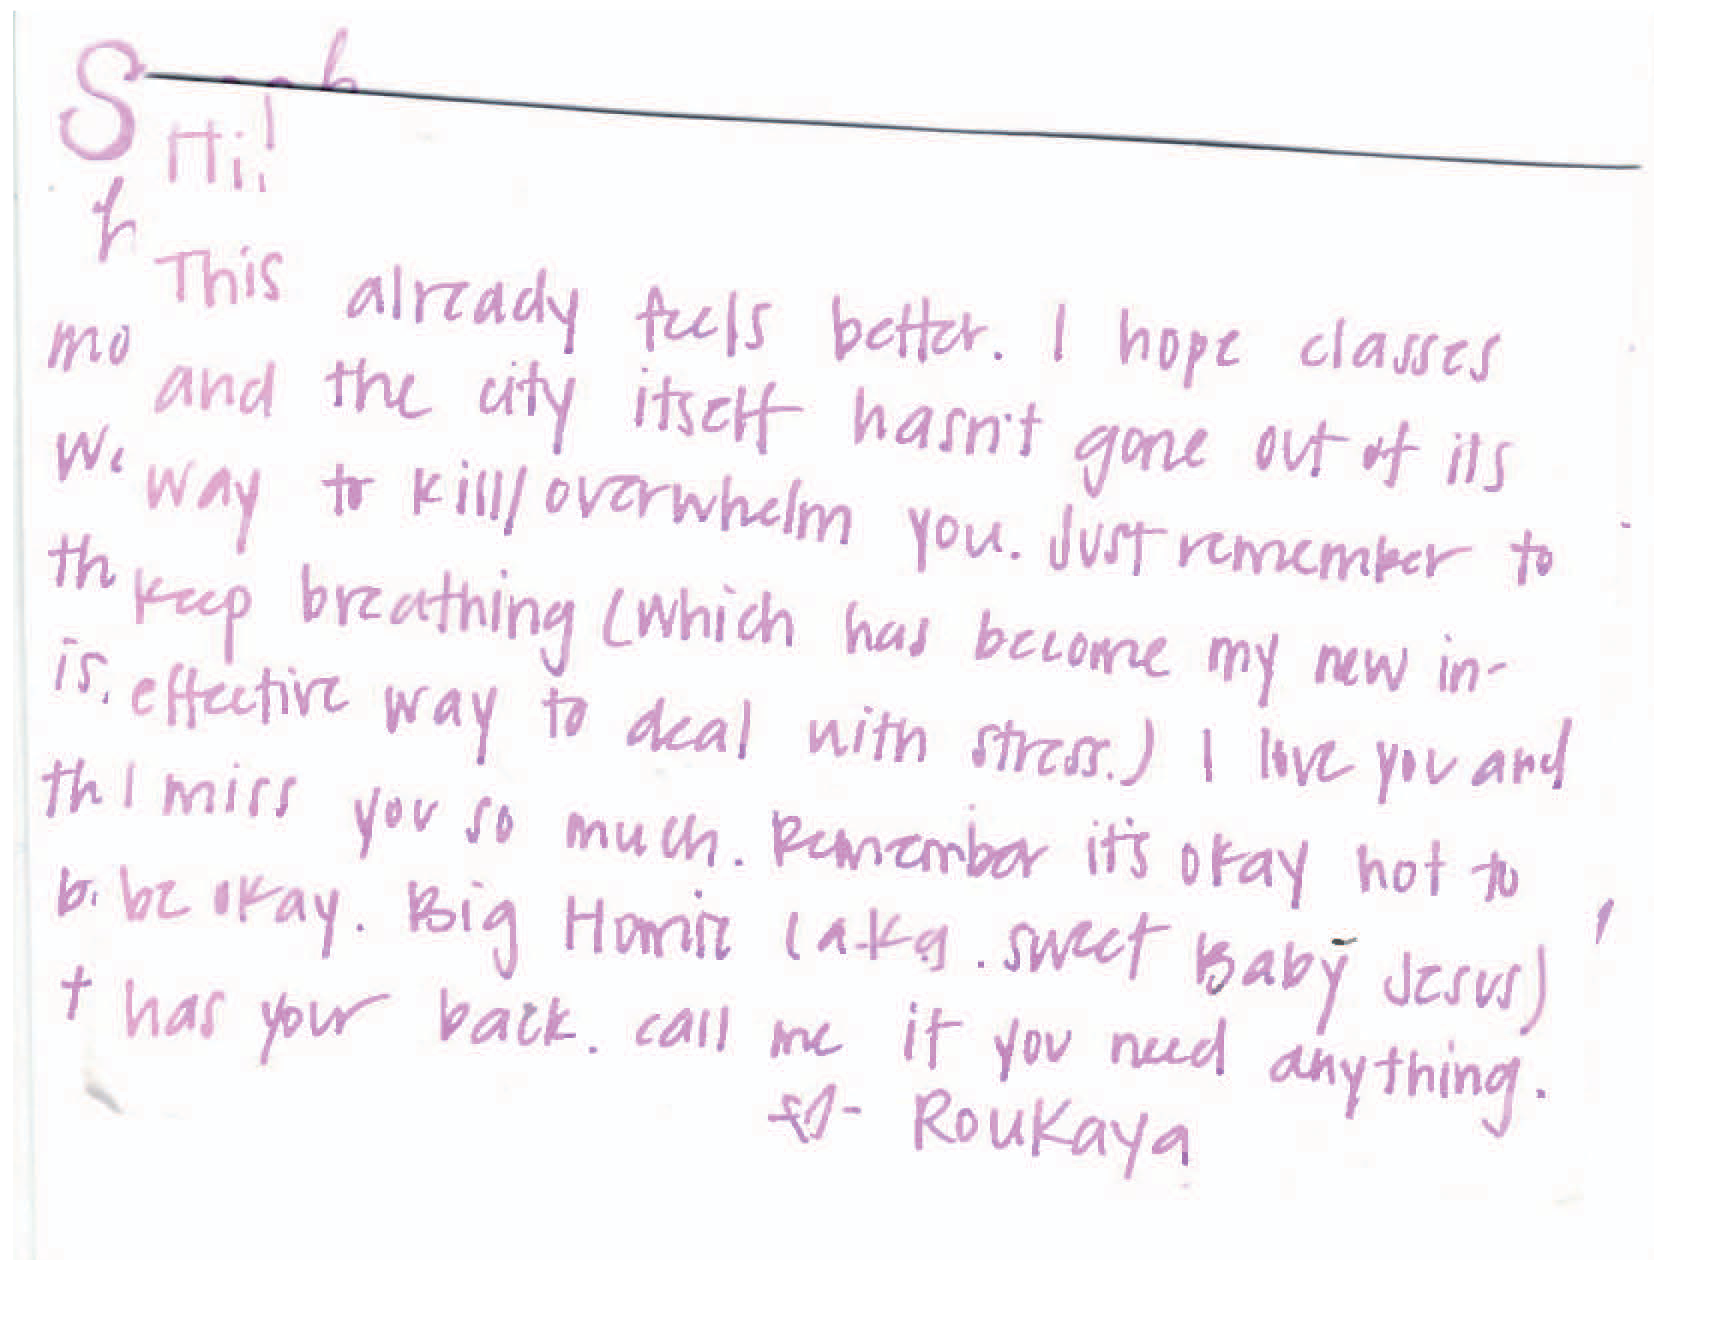 S
Hi!
h
This already feels better. I hope classes
mo
and the city itself hasn't gone out of its
way to kill/overwhelm you. Just remember to
th
keep breathing (which has become my new in-
is.
effective way to deal with stress.) I love you and
th
I miss you so much. Remember it's okay not to
b
be okay. Big Homie (aka. sweet Baby Jesus)
t
has your back. call me if you need anything.
- Roukaya